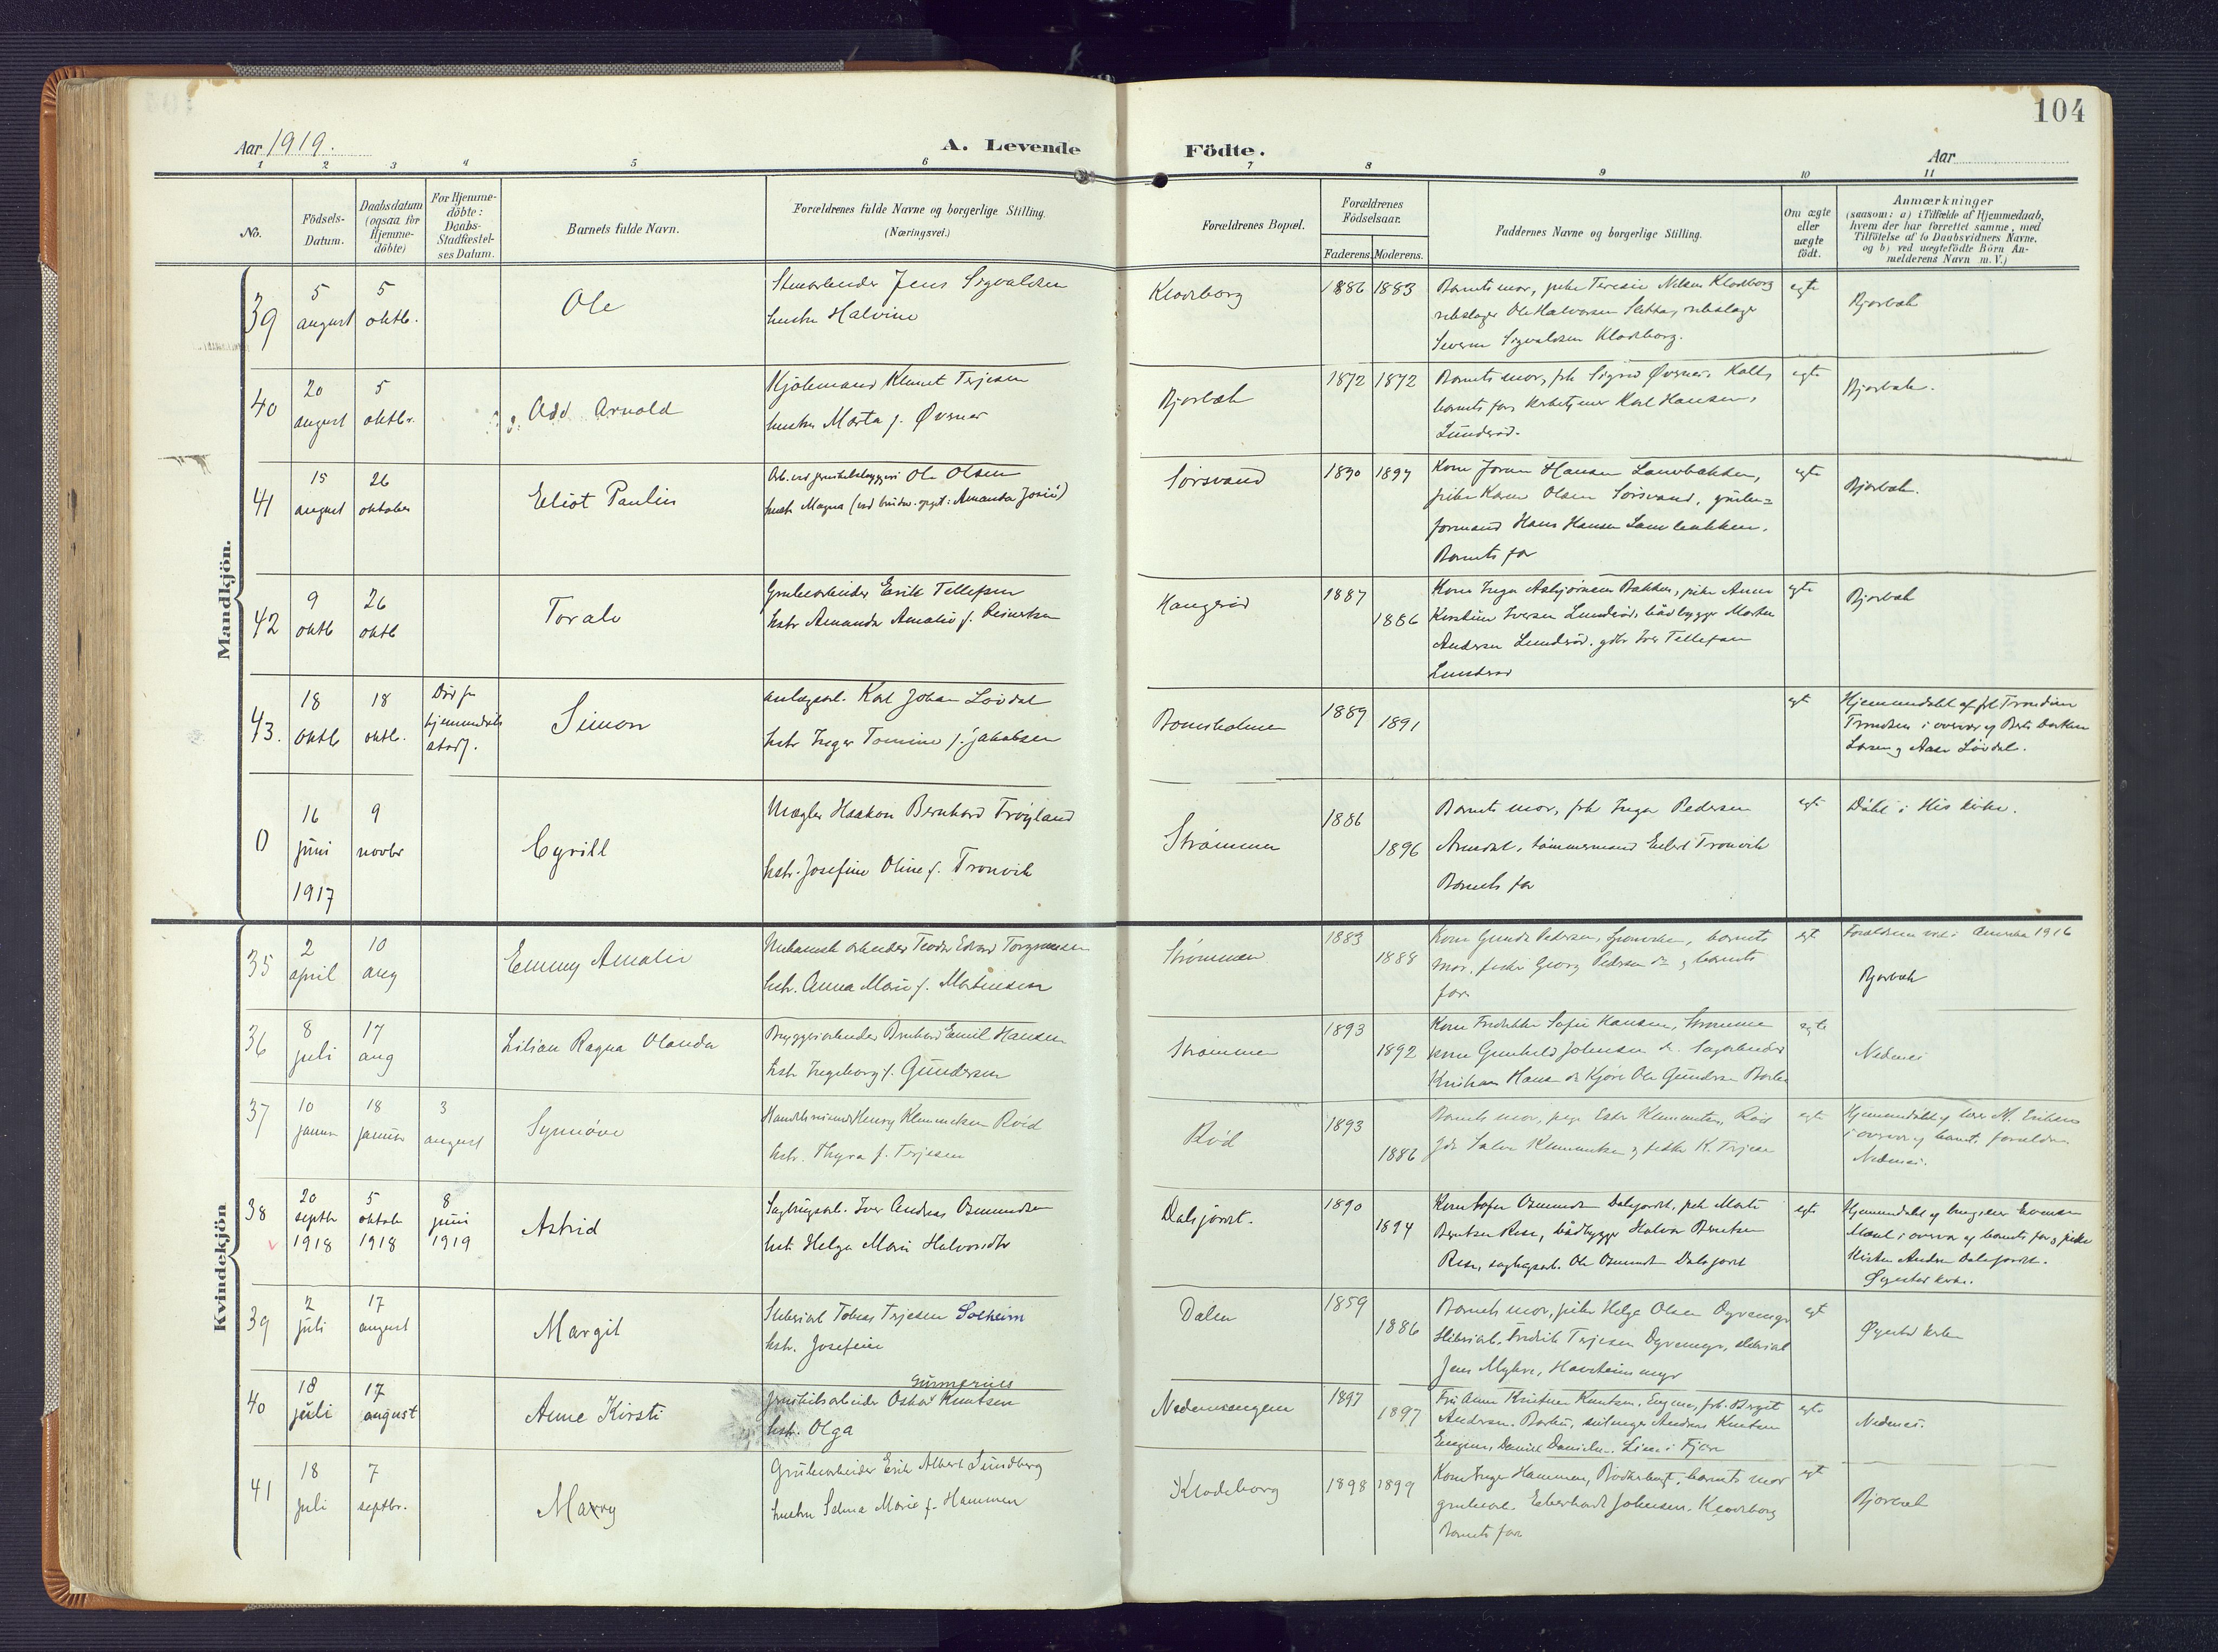 104
Aar 1919.
A. Levende
Födte.
Aar
1 2 3 4 5 6 7 8 9 10 11
No.
Födsels-
Datum.
Daabsdatum
(ogsaa for
Hjemme-
döbte)
For Hjemme-
döbte:
Daabs-
Stadfæstel-
ses Datum.
Barnets fulde Navn.
Forældrenes fulde Navne og borgerlige Stilling.
(Næringsvei.)
Forældrenes Bopæl.
Forældrenes
Födselsaar.
Faderens. Moderens.
Faddernes Navne og borgerlige Stilling.
Om ægte
eller
uægte
födt.
Anmærkninger
(saasom: a) i Tilfælde af Hjemmedaab,
hvem der har forrettet samme, med
Tilföielse af to Daabsvidners Navne.
og b) ved uægtefödte Börn An-
melderens Navn m. V.)
Mandkjön.
39
5
august
5
oktb.
Ole
Jens Sigvaldsen
hustru Halvine
Klodeborg
1886 1883
Barnets mor, pike Teresie Nilsen Klodeborg
Ole Halvorsen
Severin Sigvaldsen Klodeborg.
egte
Bjorbæk
40
20
august
5
oktbr.
Odd Arnold
Klemet Terjesen
hustru Marta f. Øvenes
Bjorbæk
1872 1872
Barnets mor, frk Sigrid Øvenes
barnets far, Karl Hansen,
Lunderød.
egte
Bjorbæk.
41
15
august
26
oktober
Eliot Paulin
Ole Olsen
hustr Magna (Amanda Josiè)
Sörsvand
1890 1894
Kone Joran Hansen
pike Karen Olsen Sörsvand,
formand Hans Hansen
Barnets far
egte
Bjorbæk.
42
9
oktb
26
oktb
Toralv
Grubearbeider Erik Tellefsen
hstr Amanda Amalie f. Reinertsen
Haugerød
1887
1886
Kone Inga Asbjörnsen Bakken, pike Anna
Kirstine Iversen Lunderöd, bådbygger Morten
Andersen Lunderöd. gdbr Iver Tellefsen
Lunderød
egte
Bjorbæk
43.
18
oktb
18
oktb.
Död før
hjemmedaabs
stadf.
Simon
anlægsarb. Karl Johan Lövdal
hstr Inger Tomine f. Jakobsen
1889
1891
egt
Hjemmedøbt af frk Trondine
i overvær af
Larsen og Aase Lövdal.
0
16
juni
1917
9
novbr
Cyrill
Mægler Haakon Bernhard Fröyland
hstr. Josefine Oline f. Tronvik
Strømmen
1886
1896
Barnets mor, frk Inga Pedersen
Arendal, tömmermand Tronvik
Barnets far
egte
Döbt i His kirke.
Kvindekjön
35
2
april
10
aug
Emmy Amalie
Mekanisk arbeider Teodor Edvard Torgrimsen
hstr. Anna Marie f. Martinsen
Strömmen
1883
1888
Kone Gunda Pedersen, barnets
mor, fisker Georg Pedersen ds og barnets
far
egt
Forældrene viet i Amerika 1916
Bjorbæk
36
8
juli
17
aug
Lilian Ragna Olanda
Bryggeriarbeider Bernhard Emil Hansen
hstr Ingeborg f. Gundersen
Strömmen
1893
1892
Kone Fredrikke Sofie Hansen, Strömmen
kone Gunhild Johnsen ds.
Kristian Hansen ds Ole Gundersen
egte
Nedenes
37
10
januar
18
januar
3
august
Synnöve
Handelsmand Henry Klemmetsen Röid
hstr. Thyra f. Terjesen
Röd
1893
1886
Barnets mor, Ester Klemmetsen, Röd
Salve Klemmetsen og fisker K. Terjesen
egte
Hjemmedöbt af lærer M. Eriksen
i overvær af barnets forældre.
Nedenes.
38
20
septbr
1918
5
oktob
1918
8
juni
1919
Astrid
Sagbrugsarb. Iver Andreas Osmundsen
hstr Helga Marie Halvorsdtr
Dalsjordet.
1890
1894
Kone Sofie Osmundsen Dalsjordet, pike Marti
Berntsen Rise, bådbygger Halvor Berntsen
Rise, sagbrugsarb. Ole Osmundsen Dalsjordet
egte
Hjemmedöbt af Evensen
i overvær af barnets far og pike
Kirsten Andersen Dalsjordet.
Øyestad kirke.
39
2
juli
17
august
Margit
Sliberiarb Tobias Terjesen Solheim
hstr. Josefine
Dalen
1859
1886
Barnets mor, pike Helga Olsen Dyvemyr
Sliberiarb. Fredrik Terjesen Dyvemyr, sliberiarb
Jens Myhre,
egt
Øyestad kirke
40
18
juli
17
august
Anne Kirsti
Gunnerius
Oskar Knutsen
hstr. Olga
Nedenesengen
1897
1897
Fru Anna Kristine Knutsen, Engene, frk. Birgit
Andersen. Barbu, Andreas Knutsen
Engene, Daniel Danielsen. Lien i Fjære
egte
Nedenes.
41
18
juli
7
septbr.
Marry
Grubearbeider Erik Albert Sundberg
hustru Selma Marie f. Hammen
Klodeborg
1898 1899
Kone Inger Hammen, barnets mor
grubearb. Eberhardt Johnsen. Klodeborg
Barnets far
egt
Bjorbæk